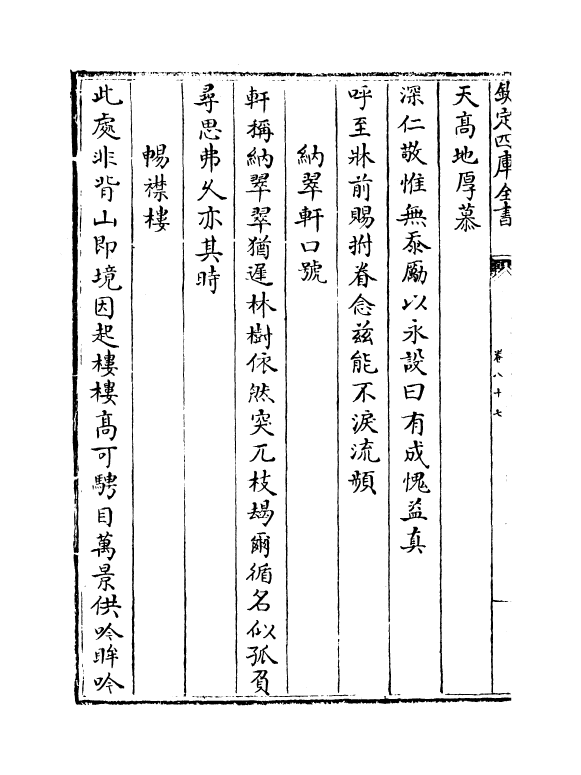 欽定四庫全書
卷八十七
天髙地厚慕
深仁敬惟無忝勵以永設曰有成愧益真
呼至牀前賜拊眷念兹能不淚流頻
納翠軒口號
軒稱納翠翠猶遲林樹依然突兀枝朅爾循名似孤負
尋思弗乆亦其時
暢襟樓
此處非背山即境因起樓樓髙可騁目萬景供吟眸吟